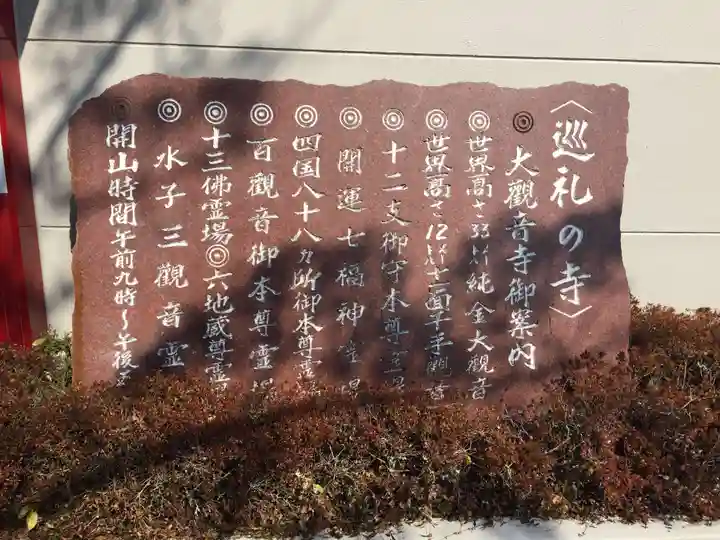 〈巡礼の寺〉
◎大觀音寺御案内
◎世界高さ33㍍純金大觀音
◎世界高さ12㍍十一面千手觀音
◎十二支御守本尊霊場
◎開運七福神霊場
◎四国八十八ヵ所御本尊霊
◎百觀音御本尊霊場
◎十三佛霊場◎六地蔵尊霊
◎水子三觀音霊
◎開山時間午前九時～午後